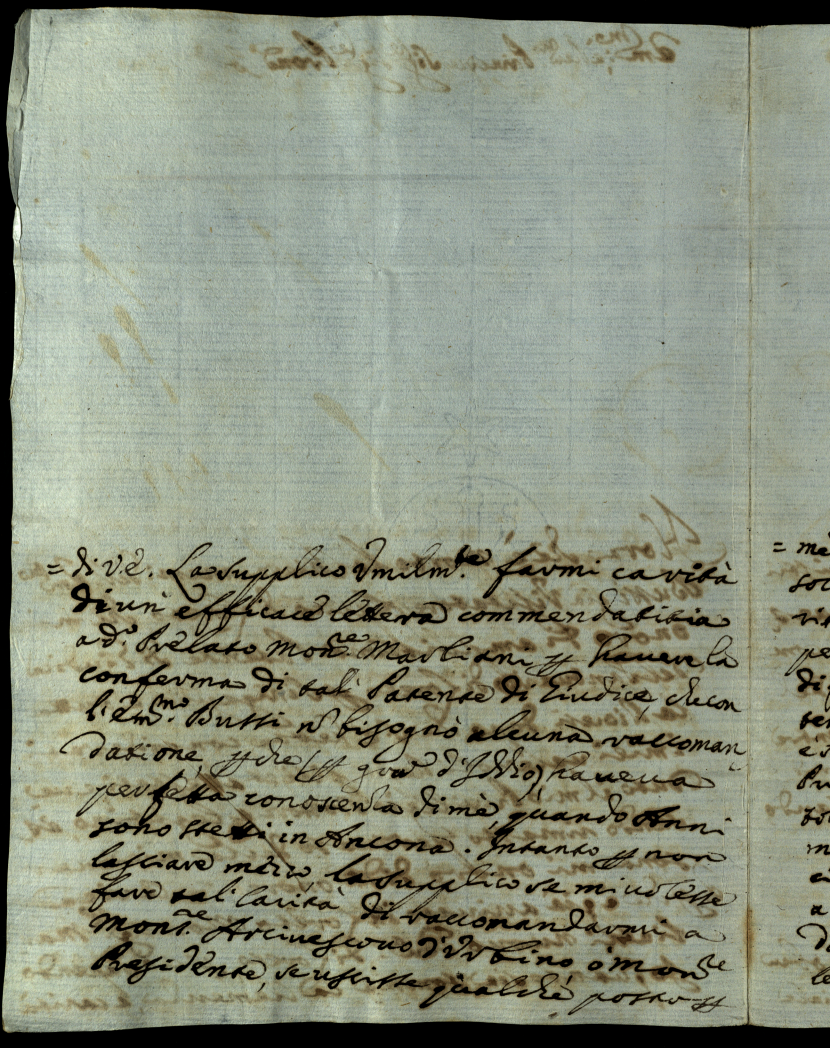 = di V.E. La supplico Vmilm.te farmi carità
di un' efficace lettera commendatitia
a d.o Prelato Mon.re Marliani ꝑ havere la
conferma di tal' Patente di Giudice, che con
l'Em.mo Bussi nō bisognò alcuna raccoman
datione, ꝑche (ꝑ gra d'Iddio) haveva
perfetta conoscenza di mè, quando Anni
sono stetti in Ancona. Intanto ꝑ non
lasciare la supplico se mi volesse
fare tal' Carità di raccomandarmi a
Mons.re Arcivescovo d'Urbino ò Mon.re
Presidente, se uscisse qualche posto ꝑ
= me